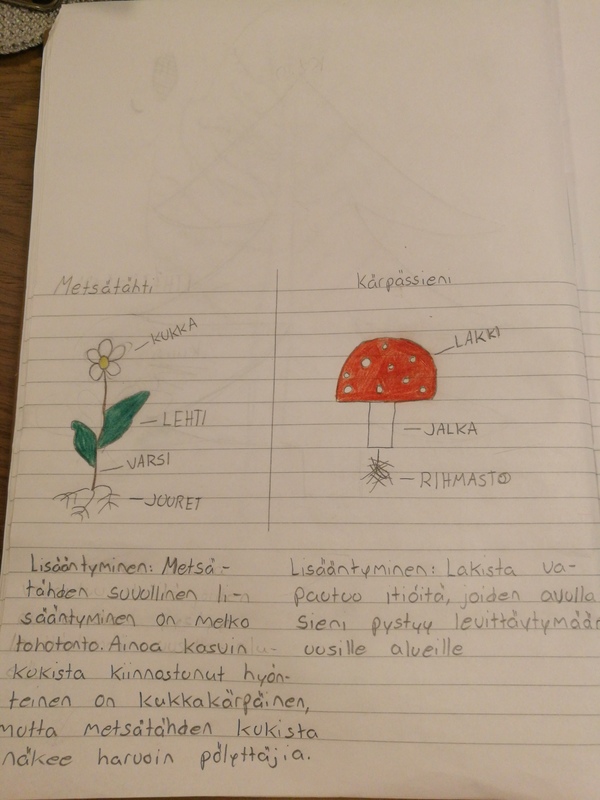 Metsätähti
Kärpässieni
KUKKA
LEHTI
VARSI
JUURET
LAKKI
JALKA
RIHMASTO
Lisääntyminen: Metsä-
tähden suvullinen li-
sääntyminen on melko
tohotonto. Ainoa kasvin
kukista kiinnostunut hyön-
teinen on kukkakärpäinen,
mutta metsätähden kukista
näkee harvoin pölyttäjiä.
Lisääntyminen: Lakista va-
pautuu itiöitä, joiden avulla
sieni pystyy levittäytymään
uusille alueille